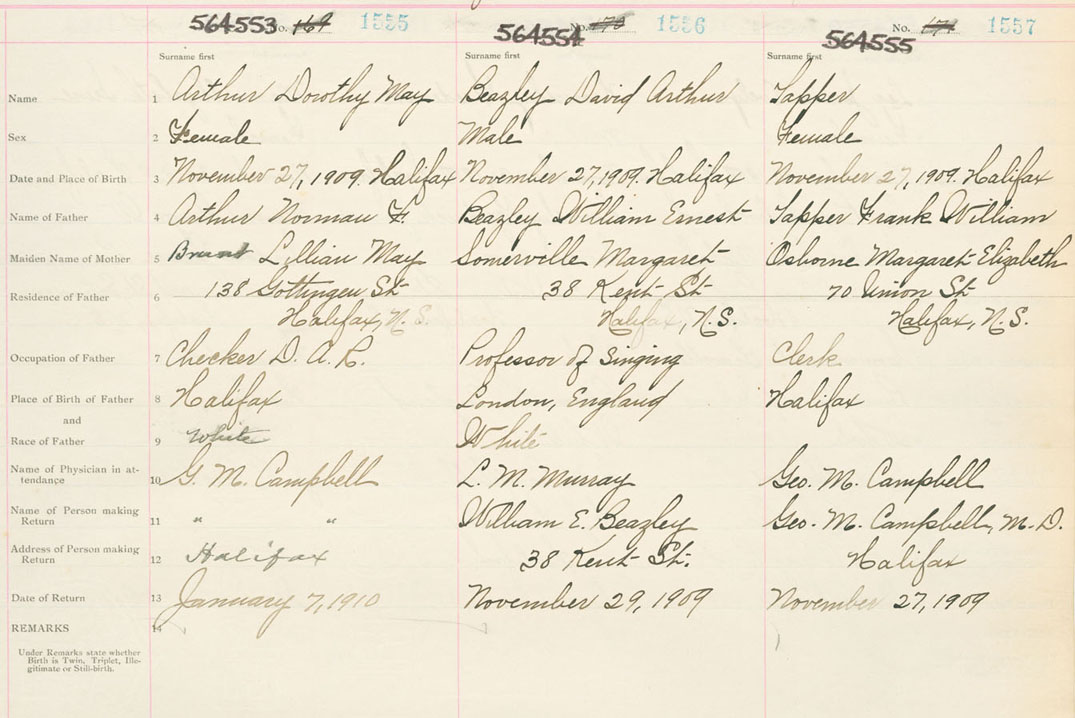 564553 No. 169 1555 564554 No. 170 1556 564555 No. 171 1557
Surname first Surname first Surname first
Name 1 Arthur Dorothy May Beazley David Arthur Sapper
Sex 2 Female Male Female
Date and Place of Birth 3 November 27, 1909. Halifax November 27, 1909. Halifax November 27, 1909. Halifax
Name of Father 4 Arthur Norman F. Beazley William Ernest Sapper Frank William
Maiden Name of Mother 5 Lillian May Somerville Margaret Osborne Margaret Elizabeth
Residence of Father 6 138 Gottingen St 38 Kent St 70 Union St
Halifax, N.S. Halifax, N.S. Halifax, N.S.
Occupation of Father 7 Checker D. A. R. Professor of Singing Clerk
Place of Birth of Father 8 Halifax London, England Halifax
and
Race of Father 9 White White
Name of Physician in at-
tendance 10 G. M. Campbell L. M. Murray Geo. M. Campbell
Name of Person making
Return 11 " " William E. Beazley Geo. M. Campbell, M.D.
Address of Person making
Return 12 Halifax 38 Kent St. Halifax
Date of Return 13 January 7, 1910 November 29, 1909 November 27, 1909
REMARKS 14
Under Remarks state whether
Birth is Twin, Triplet, Ille-
gitimate or Still-birth.